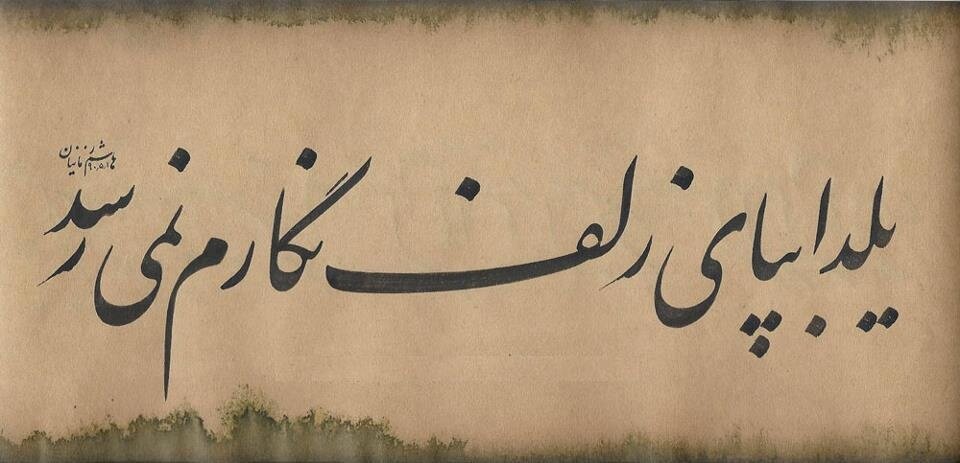 یلدا بپای زلف نگارم نمی رسد
هاشم زمانیان